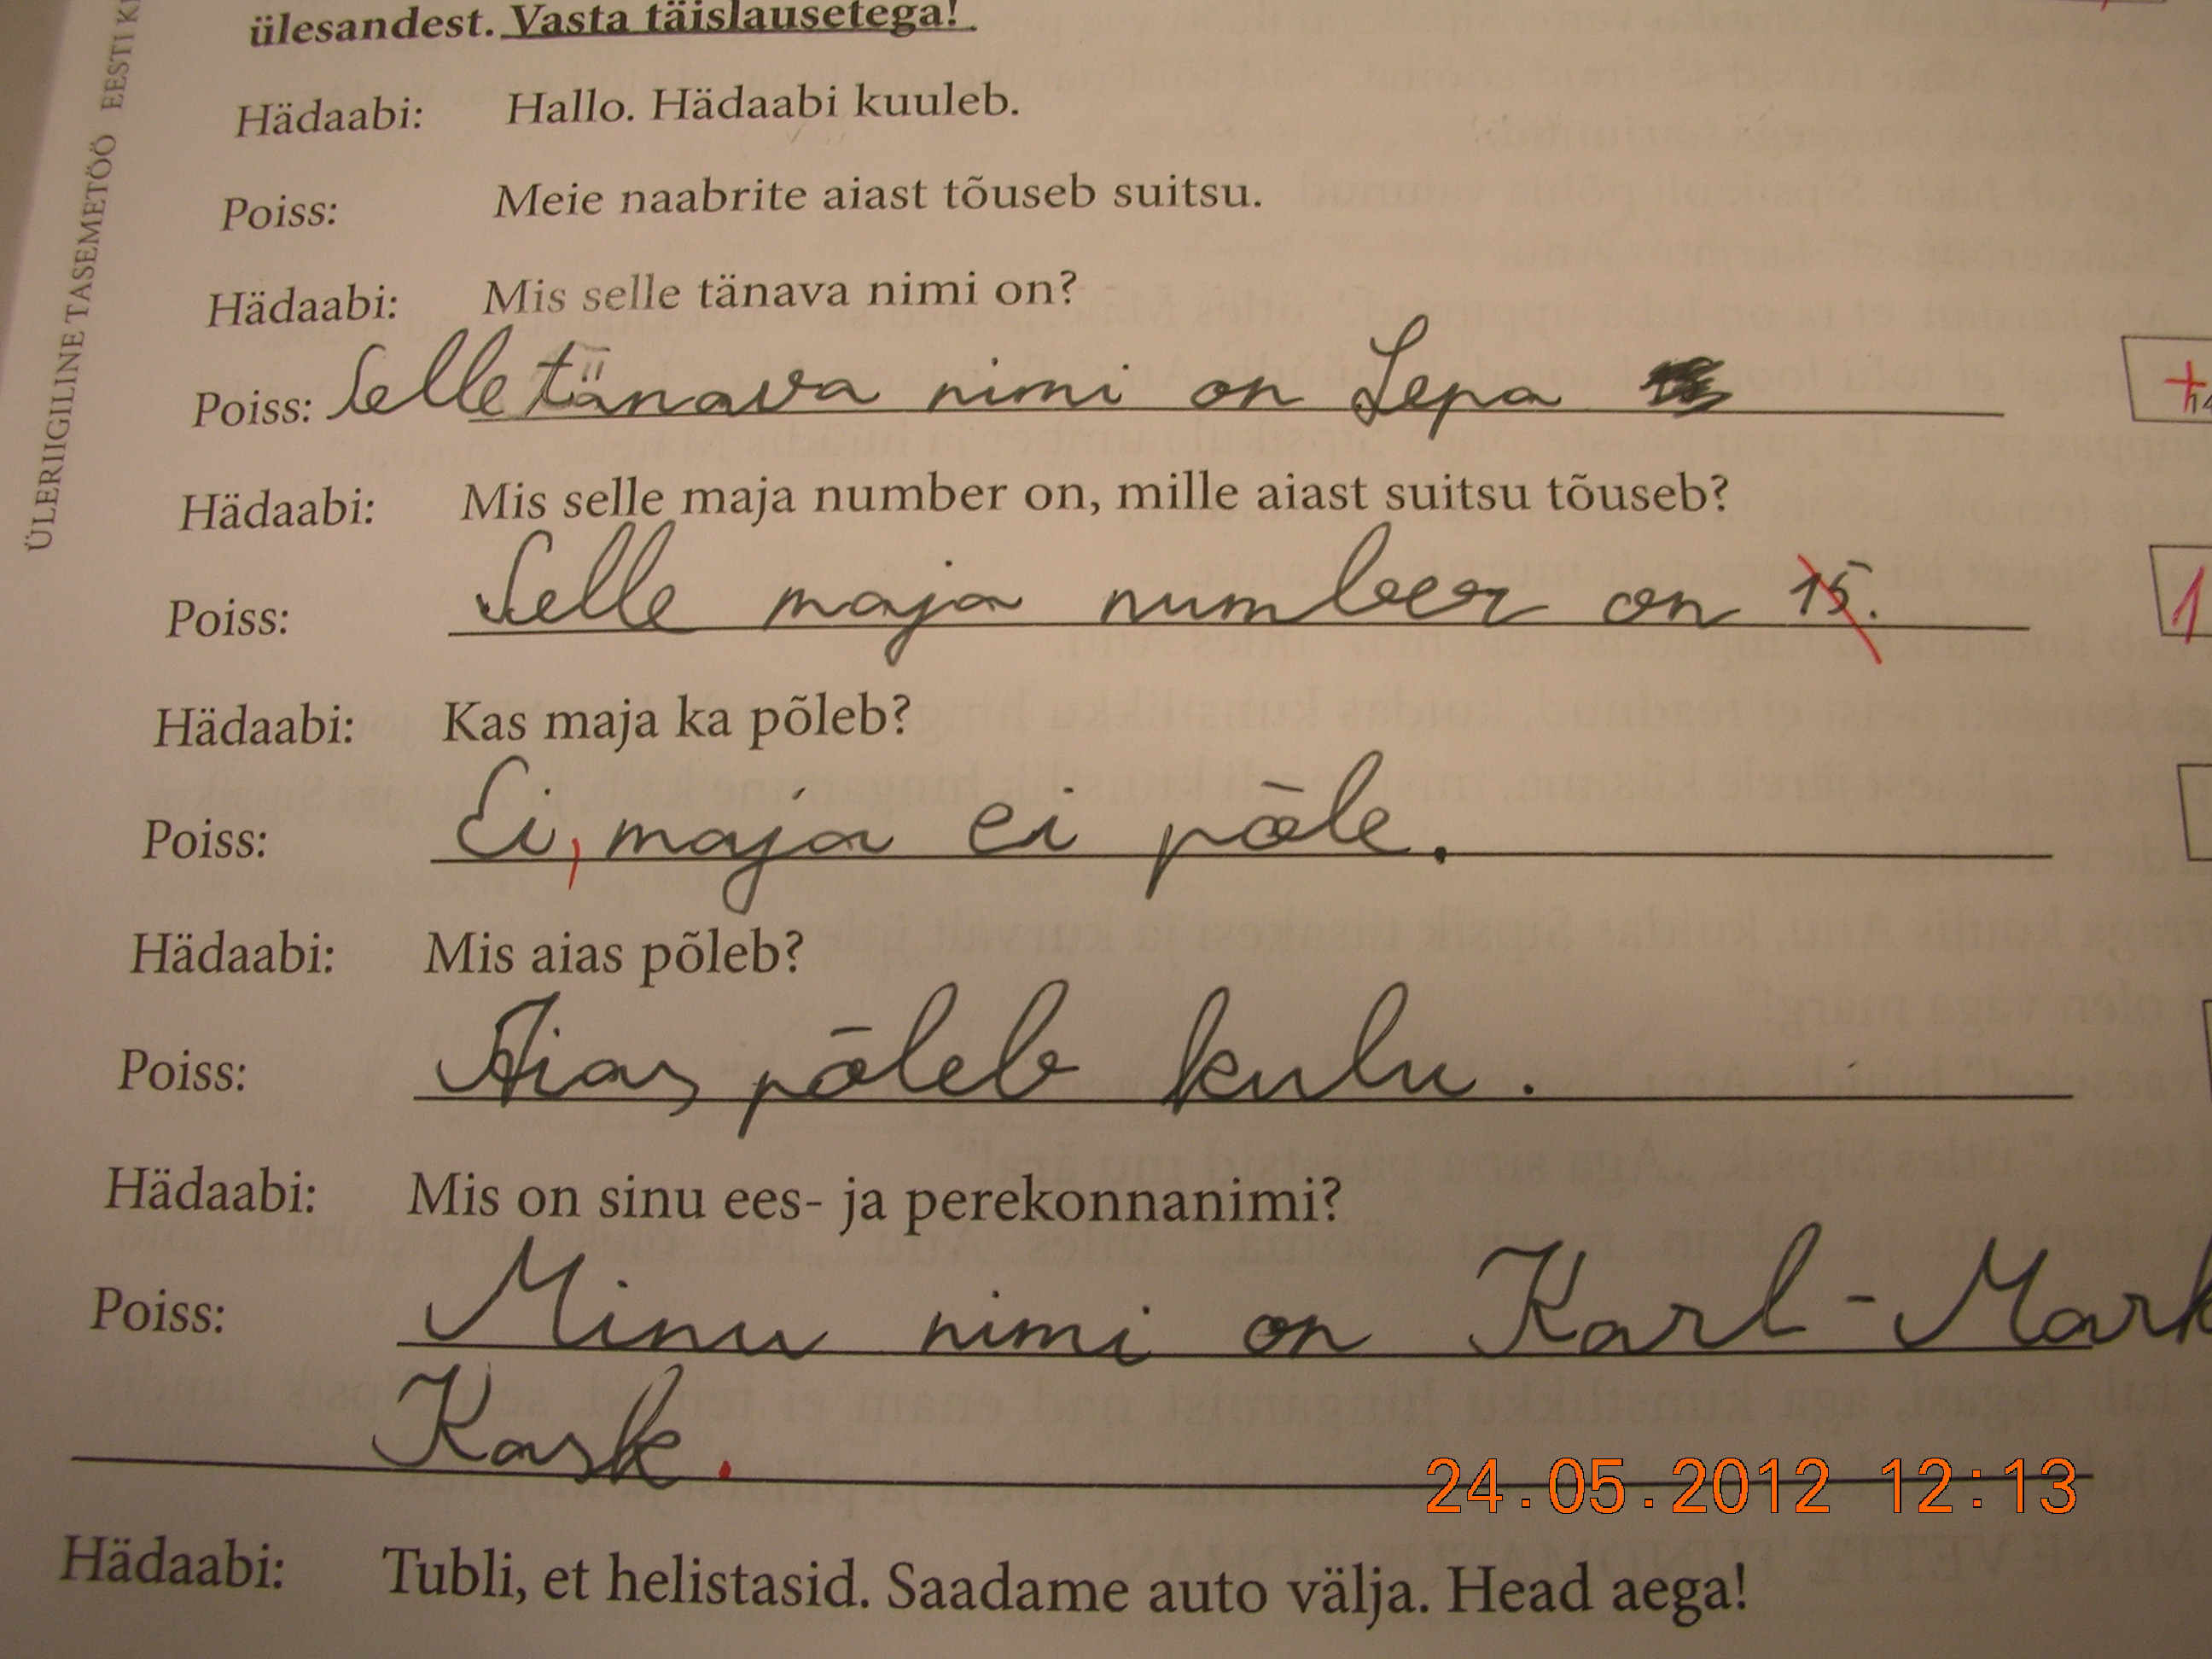 ülesandest. Vasta täislausetega!
ÜLERIIGILINE TASEMETÖÖ EESTI
Hädaabi: Hallo. Hädaabi kuuleb.
Poiss: Meie naabrite aiast tõuseb suitsu.
Hädaabi: Mis selle tänava nimi on?
Poiss: Selle tänava nimi on Lepa
Hädaabi: Mis selle maja number on, mille aiast suitsu tõuseb?
Poiss: Selle maja number on 15.
1
Hädaabi: Kas maja ka põleb?
Poiss: Ei, maja ei põle.
Hädaabi: Mis aias põleb?
Poiss: Aias põleb kulu.
Hädaabi: Mis on sinu ees- ja perekonnanimi?
Poiss: Minu nimi on Karl-Mark
Kask.
24.05.2012 12:13
Hädaabi: Tubli, et helistasid. Saadame auto välja. Head aega!